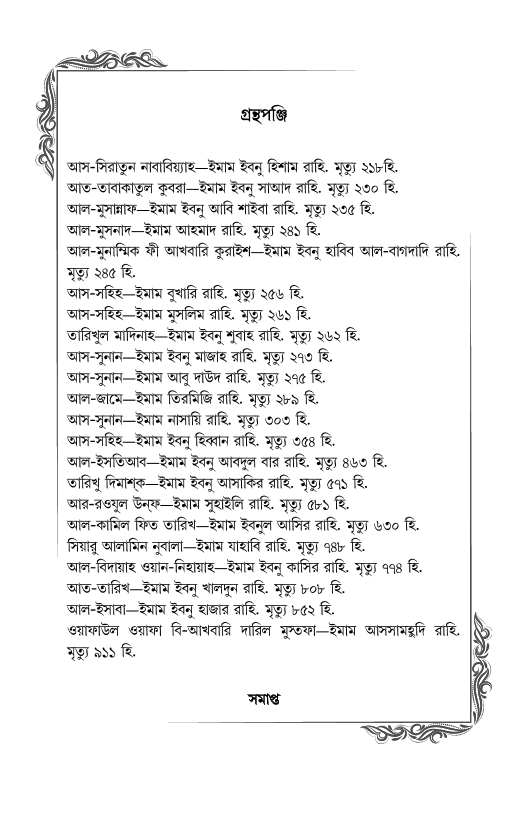 গ্রন্থপঞ্জি
আস-সিরাতুন নাবাবিয়্যাহ—ইমাম ইবনু হিশাম রাহি. মৃত্যু ২১৮হি.
আত-তাবাকাতুল কুবরা—ইমাম ইবনু সাআদ রাহি. মৃত্যু ২৩০ হি.
আল-মুসান্নাফ—ইমাম ইবনু আবি শাইবা রাহি. মৃত্যু ২৩৫ হি.
আল-মুসনাদ—ইমাম আহমাদ রাহি. মৃত্যু ২৪১ হি.
আল-মুনাম্মিক ফী আখবারি কুরাইশ—ইমাম ইবনু হাবিব আল-বাগদাদি রাহি.
মৃত্যু ২৪৫ হি.
আস-সহিহ—ইমাম বুখারি রাহি. মৃত্যু ২৫৬ হি.
আস-সহিহ—ইমাম মুসলিম রাহি. মৃত্যু ২৬১ হি.
তারিখুল মাদিনাহ—ইমাম ইবনু শুবাহ রাহি. মৃত্যু ২৬২ হি.
আস-সুনান—ইমাম ইবনু মাজাহ রাহি. মৃত্যু ২৭৩ হি.
আস-সুনান—ইমাম আবু দাউদ রাহি. মৃত্যু ২৭৫ হি.
আল-জামে—ইমাম তিরমিজি রাহি. মৃত্যু ২৮৯ হি.
আস-সুনান—ইমাম নাসায়ি রাহি. মৃত্যু ৩০৩ হি.
আস-সহিহ—ইমাম ইবনু হিব্বান রাহি. মৃত্যু ৩৫৪ হি.
আল-ইসতিআব—ইমাম ইবনু আবদুল বার রাহি. মৃত্যু ৪৬৩ হি.
তারিখু দিমাশ্ক—ইমাম ইবনু আসাকির রাহি. মৃত্যু ৫৭১ হি.
আর-রওযুল উন্ফ—ইমাম সুহাইলি রাহি. মৃত্যু ৫৮১ হি.
আল-কামিল ফিত তারিখ—ইমাম ইবনুল আসির রাহি. মৃত্যু ৬৩০ হি.
সিয়ারু আলামিন নুবালা—ইমাম যাহাবি রাহি. মৃত্যু ৭৪৮ হি.
আল-বিদায়াহ ওয়ান-নিহায়াহ—ইমাম ইবনু কাসির রাহি. মৃত্যু ৭৭৪ হি.
আত-তারিখ—ইমাম ইবনু খালদুন রাহি. মৃত্যু ৮০৮ হি.
আল-ইসাবা—ইমাম ইবনু হাজার রাহি. মৃত্যু ৮৫২ হি.
ওয়াফাউল ওয়াফা বি-আখবারি দারিল মুস্তফা—ইমাম আসসামহুদি রাহি.
মৃত্যু ৯১১ হি.
সমাপ্ত